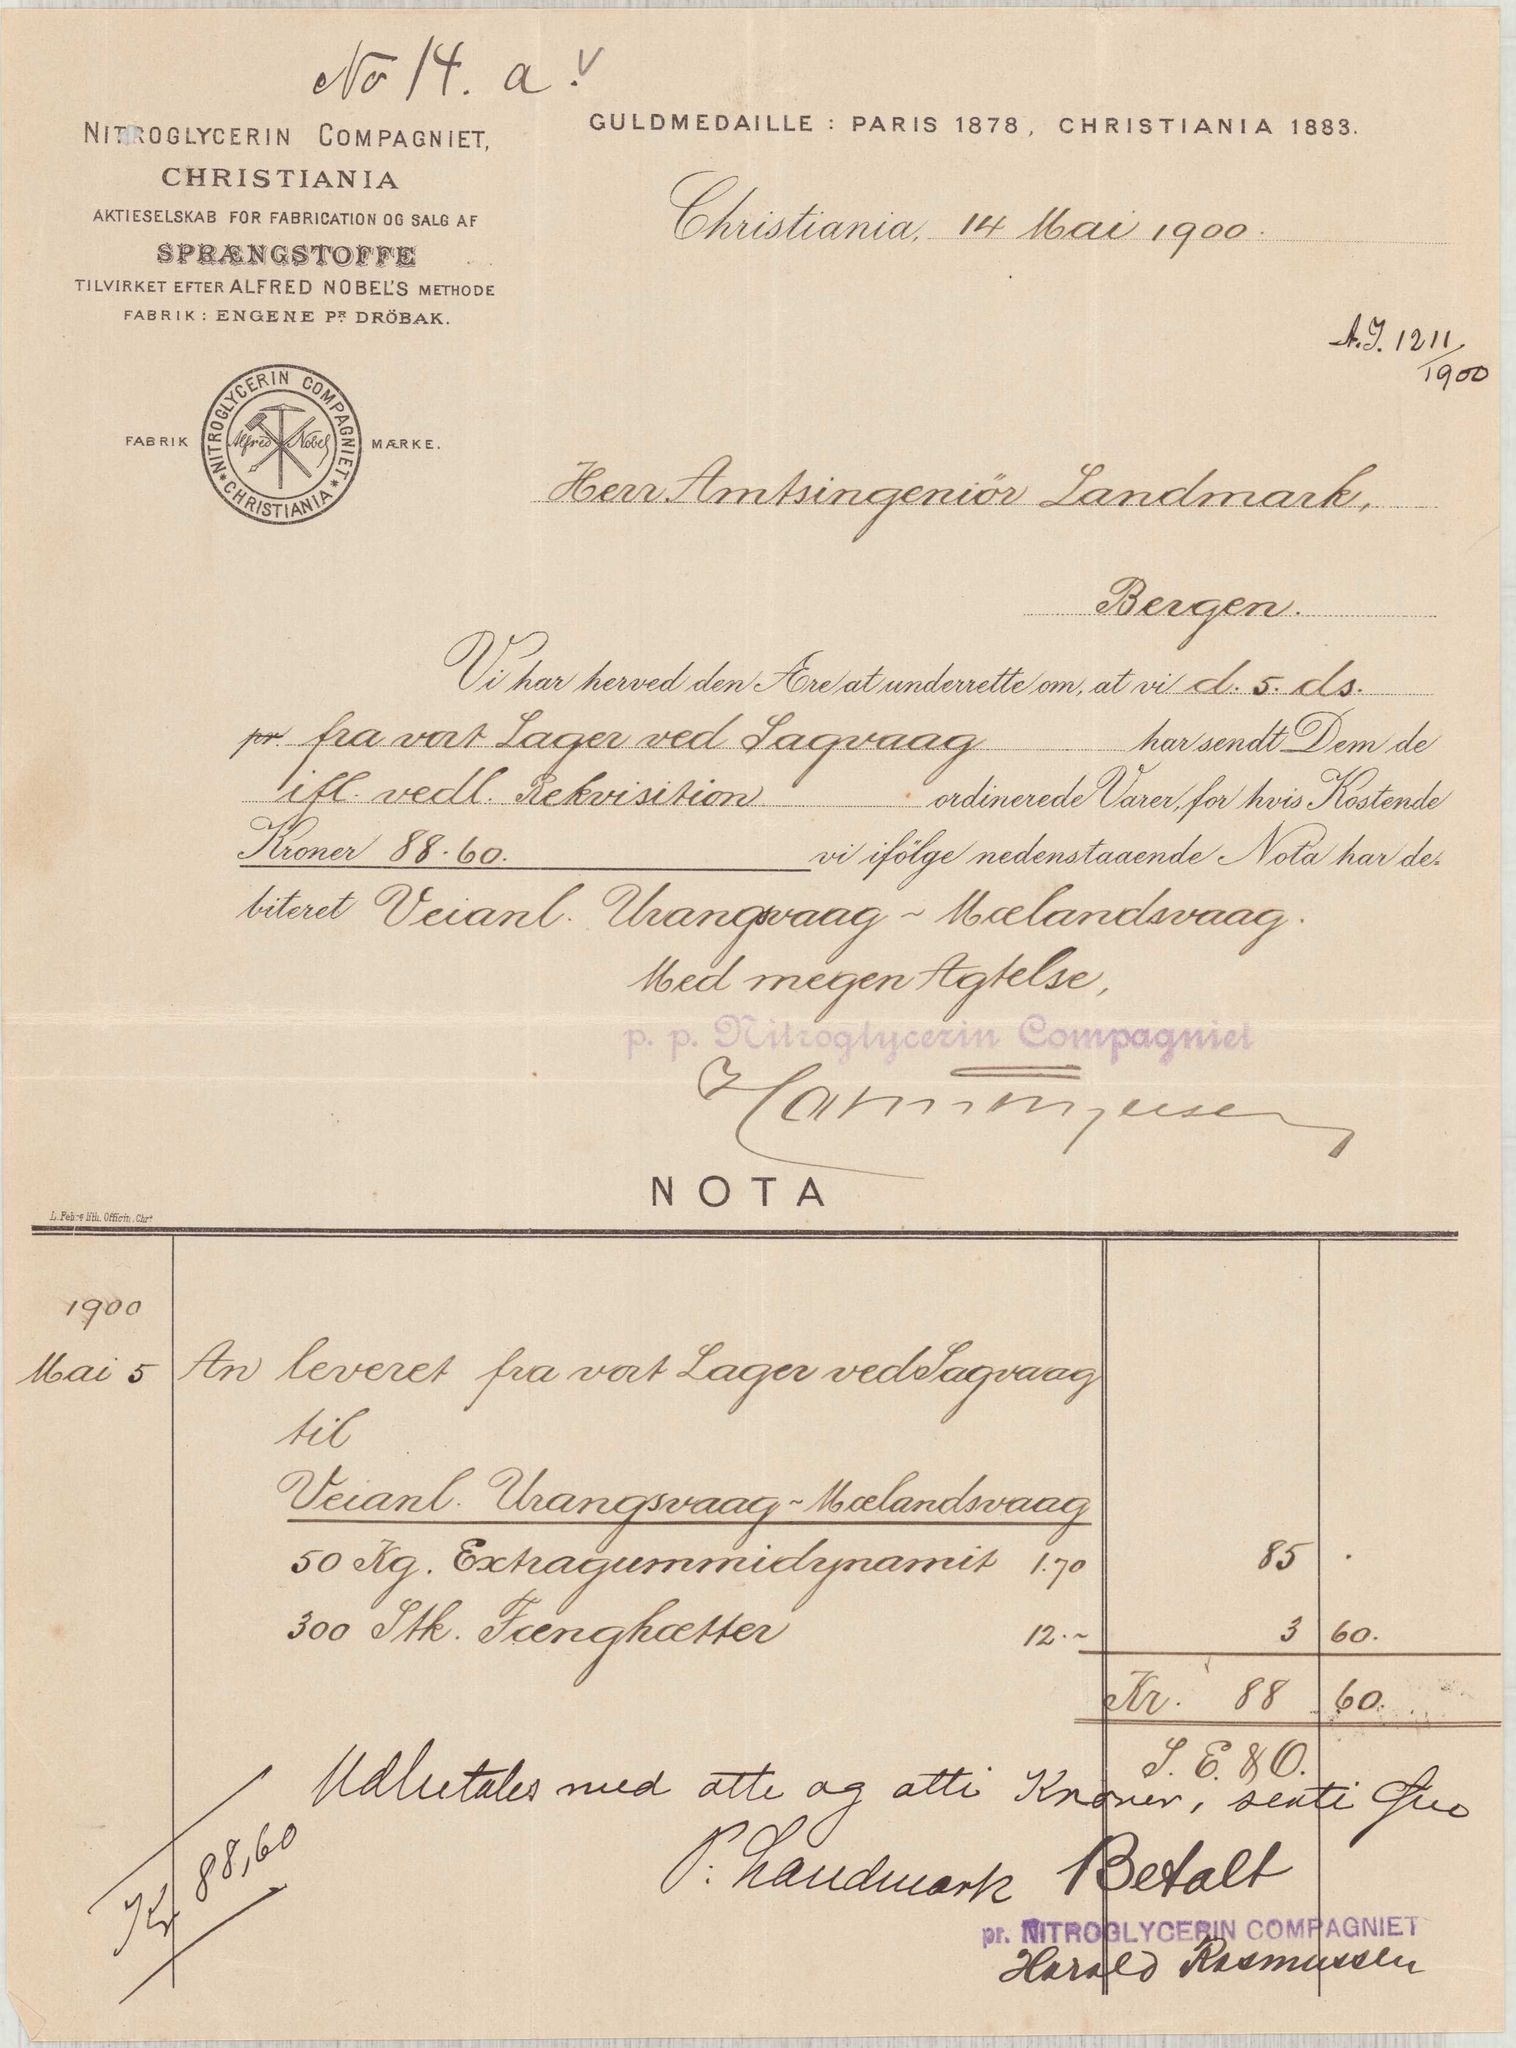 No 14. a. V
NITROGLYCERIN COMPAGNIET,
CHRISTIANIA
AKTIESELSKAB FOR FABRICATION OG SALG AF
SPRÆNGSTOFFE
TILVIRKET EFTER ALFRED NOBEL'S METHODE
FABRIK: ENGENE PR DRÖBAK.
GULDMEDAILLE: PARIS 1878, CHRISTIANIA 1883.
Christiania, 14 Mai 1900.
A.J. 1211/1900
FABRIK MÆRKE.
NITROGLYCERIN COMPAGNIET
* CHRISTIANIA *
Alfred Nobel
Herr Amtsingeniör Landmark,
Bergen.
Vi har herved den Ære at underrette om, at vi d. 5. ds.
pr. fra vort Lager ved Sagvaag har sendt Dem de
ifl. vedl. Rekvisition ordinerede Varer, for hvis Kostende
Kroner 88.60. vi ifölge nedenstaaende Nota har de-
biteret Veianl. Urangsvaag ~ Mælandsvaag.
Med megen Agtelse,
p. p. Nitroglycerin Compagniet
NOTA
L. Fehrs lith. Officin. Chra
1900
Mai 5 An leveret fra vort Lager ved Sagvaag
til
Veianl. Urangsvaag ~ Mælandsvaag
50 Kg. Extragummidynamit 1.70 85 .
300 Stk. Fænghætter 12.~ 3 60.
Kr. 88 60.
S. E. & O.
Udbetales med otte og otti Kroner, sexti Øre
Kr 88,60
P. Landmark Betalt
pr. NITROGLYCERIN COMPAGNIET
Harald Rasmussen